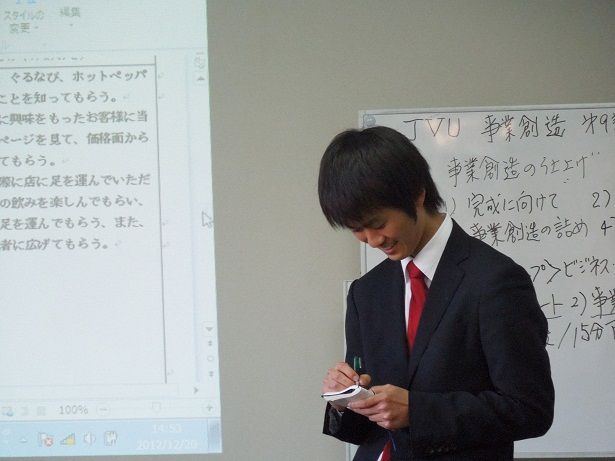 スタイルの 編集
変更
ぐるなび、ホットペッパ
ことを知ってもらう。
に興味をもったお客様に当
ページを見て、価格面から
てもらう。
際に店に足を運んでいただ
の飲みを楽しんでもらい、
足を運んでもらう、また、
者に広げてもらう。
100%
14:53
2012/12/20
JVU 事業創造 才9
事業創造の仕上げ
完成に向けて 2)
事業創造の詰め 4
プ>ビジネス
ート 2)事業
/15分